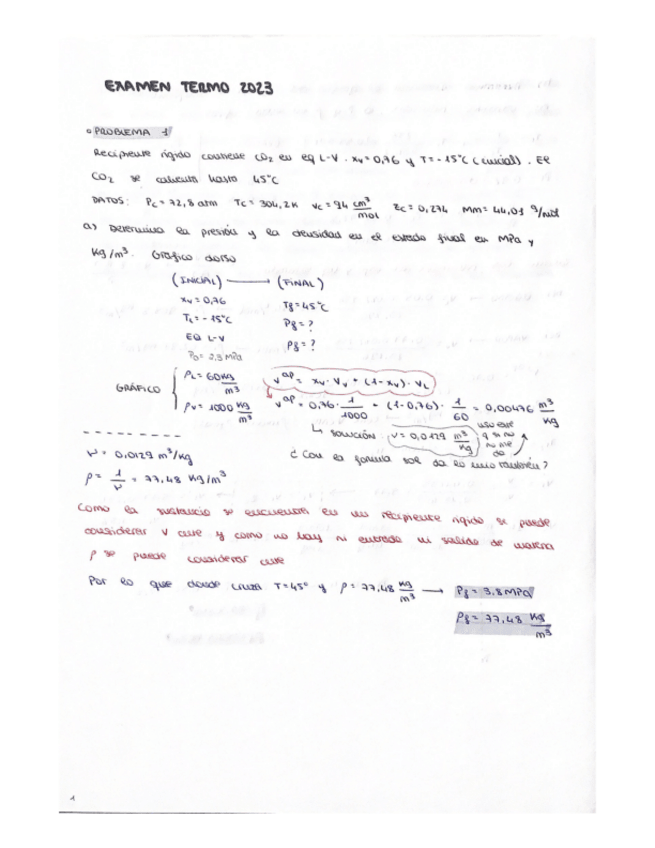 EXAMEN TERMO 2023
• PROBLEMA 1
Recipiente rígido contiene CO2 en eq L-V. xv=0,76 y T=-15°C (inicial). El
CO2 se calienta hasta 45°C
DATOS: Pc=72,8 atm Tc=304,2K vc=94 cm³/mol Zc=0,274 Mm=44,01 g/mol
a) Determina la presión y la densidad en el estado final en MPa y
kg/m³. Gráfico dorso
(INICIAL) → (FINAL)
xv=0,76 Tf=45°C
Ti=-15°C Pf=?
EQ L-V ρf=?
P0=2,3 MPa
GRÁFICO { ρL=60 kg/m³ v^ap = xv·Vv + (1-xv)·VL
ρv=1000 kg/m³ v^ap = 0,76·1/1000 + (1-0,76)·1/60 = 0,00476 m³/kg
↳ SOLUCIÓN: v=0,0129 m³/kg uso este q si no me da
v=0,0129 m³/kg ¿Con la formula sol da lo mio también?
ρ=1/v=77,48 kg/m³
Como la sustancia se encuentra en un recipiente rígido se puede
considerar V cte y como no hay ni entrada ni salida de materia
ρ se puede considerar cte
Por lo que donde cruza T=45° y ρ=77,48 kg/m³ → Pf=3,8 MPa
ρf=77,48 kg/m³
1